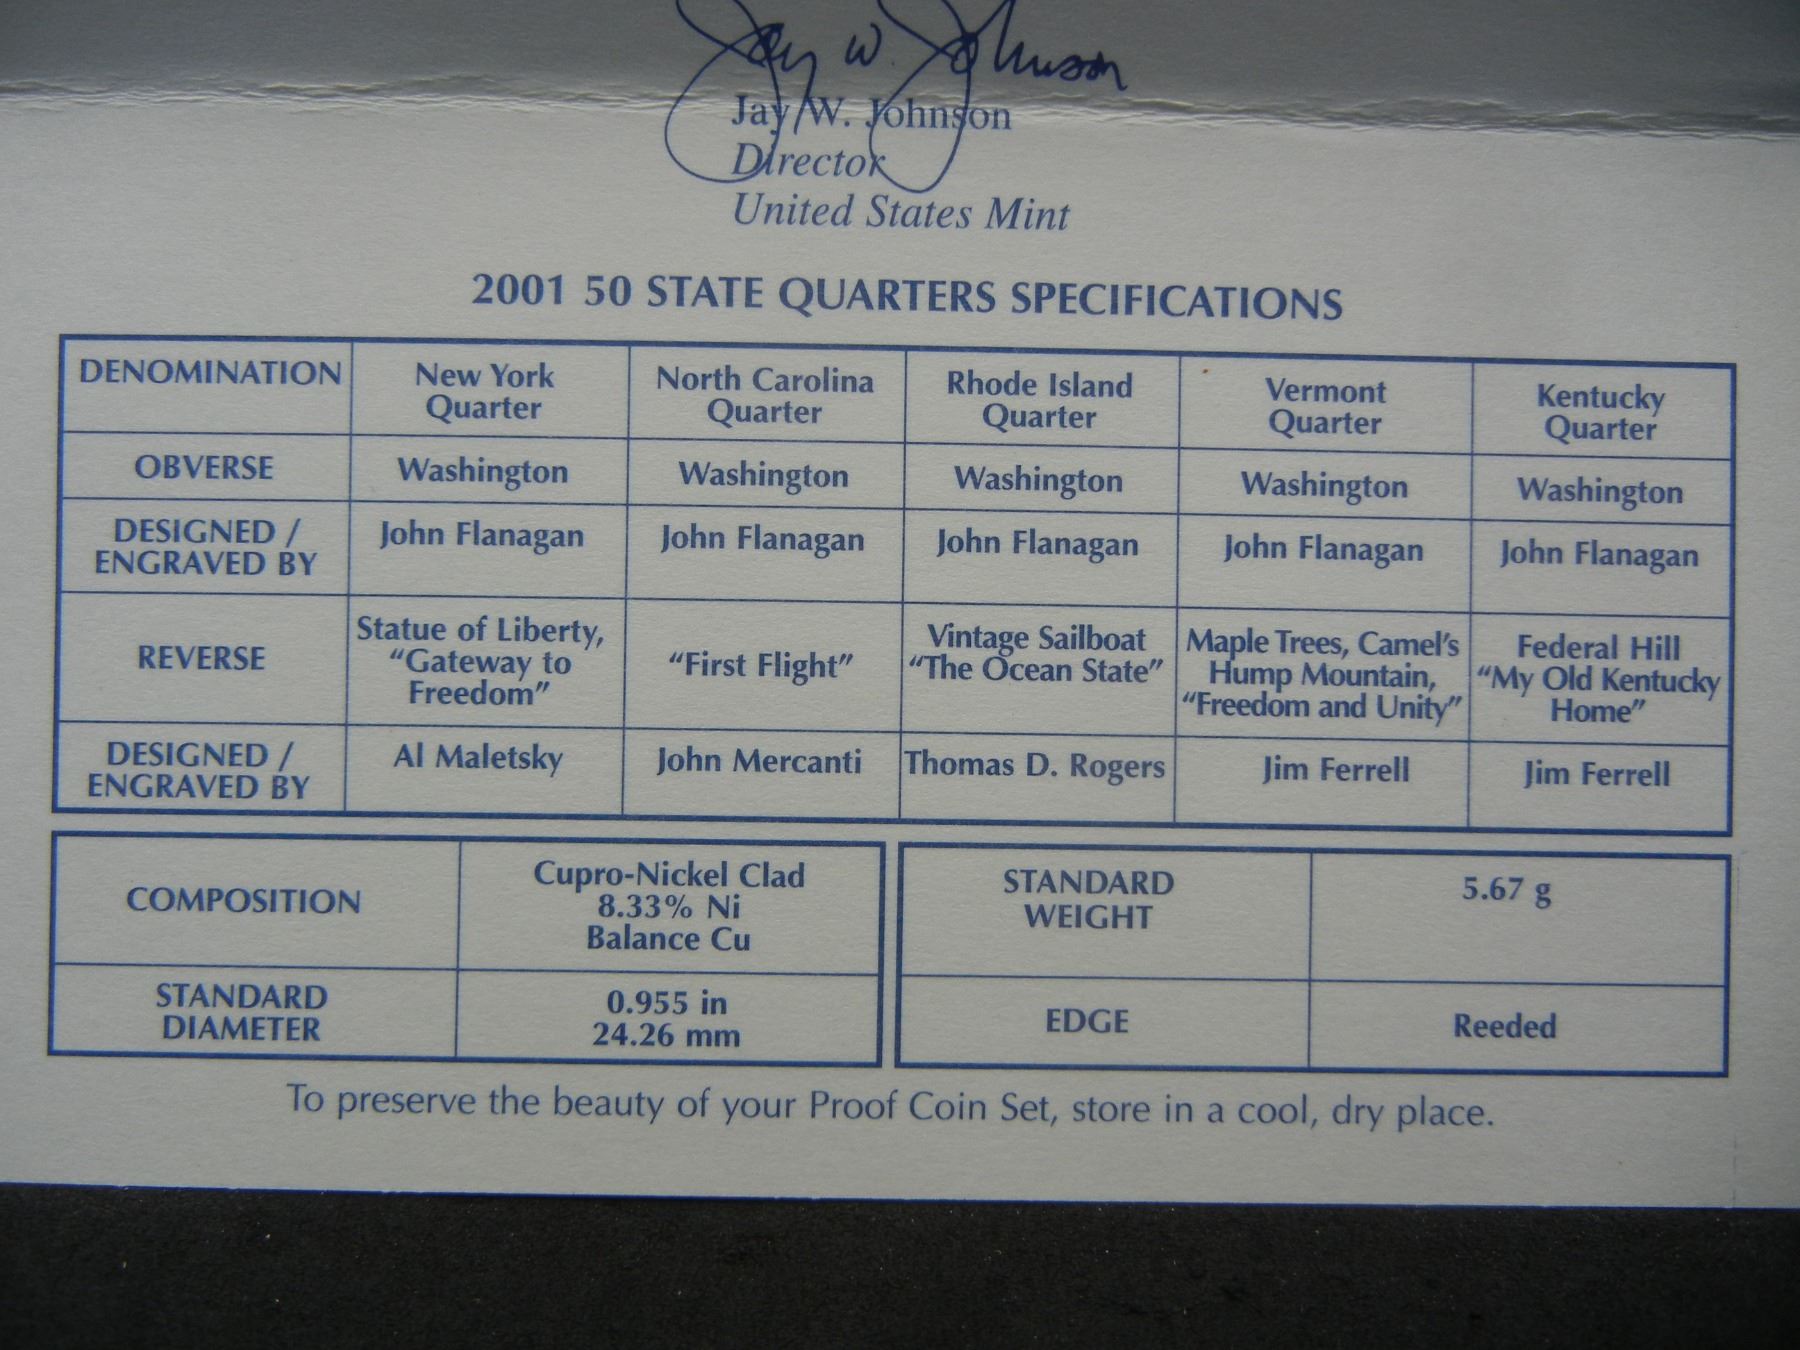 Jay W. Johnson
Jay W. Johnson
Director
United States Mint
2001 50 STATE QUARTERS SPECIFICATIONS
DENOMINATION
New York
Quarter
North Carolina
Quarter
Rhode Island
Quarter
Vermont
Quarter
Kentucky
Quarter
OBVERSE
Washington
Washington
Washington
Washington
Washington
DESIGNED /
ENGRAVED BY
John Flanagan
John Flanagan
John Flanagan
John Flanagan
John Flanagan
REVERSE
Statue of Liberty,
“Gateway to
Freedom”
“First Flight”
Vintage Sailboat
“The Ocean State”
Maple Trees, Camel’s
Hump Mountain,
“Freedom and Unity”
Federal Hill
“My Old Kentucky
Home”
DESIGNED /
ENGRAVED BY
Al Maletsky
John Mercanti
Thomas D. Rogers
Jim Ferrell
Jim Ferrell
COMPOSITION
Cupro-Nickel Clad
8.33% Ni
Balance Cu
STANDARD
DIAMETER
0.955 in
24.26 mm
STANDARD
WEIGHT
5.67 g
EDGE
Reeded
To preserve the beauty of your Proof Coin Set, store in a cool, dry place.